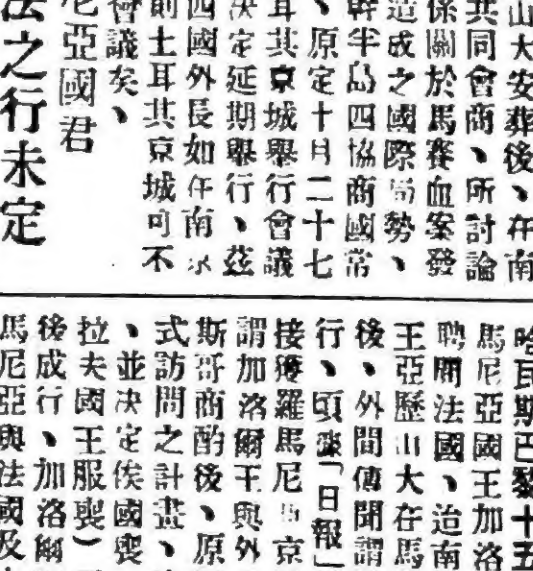 山大安葬後、在南
共同會商、所討論
係關於馬賽血案發
造成之國際局勢、
幹半島四協商國常
、原定十月二十七
耳其京城舉行會議
决定延期舉行、茲
四國外長如在南京
則土耳其京城可不
會議矣、
尼亞國君
法之行未定
哈瓦斯巴黎十五
馬尼亞國王加洛
聘問法國、迨南
王亞歷山大在馬
後、外間傳聞謂
行、頃據「日報」
接獲羅馬尼亞京
謂加洛爾王與外
斯哥商酌後、原
式訪問之計畫、
、並决定俟國喪
拉夫國王服喪）
後成行、加洛爾
馬尼亞與法國及